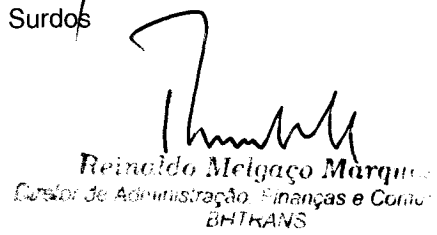 Surdos
Reinaldo Melgaço Marqu
Diretor de Administração, Finanças e Comu
BHTRANS